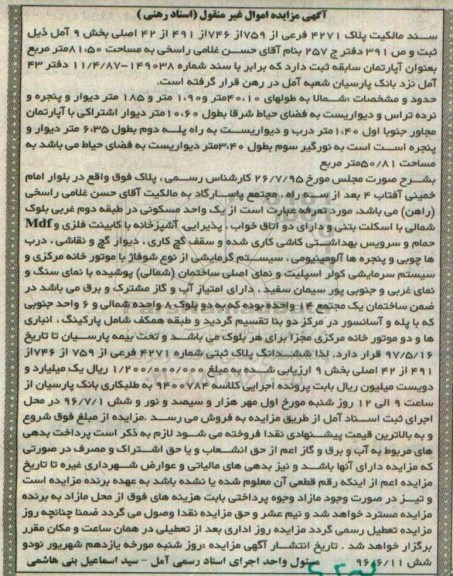 آگهی مزایده اموال غیر منقول (اسناد رهنی)
سند مالکیت پلاک ۴۲۷۱ فرعی از ۷۵۹از ۷۴۶از ۴۹۱ از ۴۲ اصلی بخش ۹ آمل ذیل
ثبت و ص ۳۹۱ دفتر ج ۲۵۷ بنام آقای حسن غلامی راسخی به مساحت ۸۱٫۵۰متر مربع
بعنوان آپارتمان سابقه ثبت دارد که برابر با سند شماره ۱۴۹۰۳۸-۱۱/۴/۸۷ دفتر ۴۳
آمل نزد بانک پارسیان شعبه آمل در رهن قرار گرفته است.
حدود و مشخصات :شمالا به طولهای ۴۰٫۱۰متر و۱٫۹۰ متر و ۱۸۵ متر دیوار و پنجره و
نرده تراس و دیواریست به فضای حیاط شرقا بطول ۱۰٫۶۰متر دیوار اشتراکی با آپارتمان
مجاور جنوبا اول ۱٫۴۰متر درب و دیواریست به راه پله دوم بطول ۶٫۳۵ متر دیوار و
پنجره است است به نورگیر سوم بطول ۳٫۴۰متر دیواریست به فضای حیاط می باشد به
مساحت ۵۰/۸۱متر مربع
بشرح صورت مجلس مورخ ۲۶/۷/۹۵ کارشناس رسمی، پلاک فوق واقع در بلوار امام
خمینی آفتاب ۴ بعد از سه راه، مجتمع پاسارگاد به مالکیت آقای حسن غلامی راسخی
(راهن) می باشد، مورد تعرفه عبارت است از یک واحد مسکونی در طبقه دوم غربی بلوک
شمالی با اسکلت بتنی و دارای دو اتاق خواب، پذیرایی، آشپزخانه با کابینت فلزی و Mdf
حمام و سرویس بهداشتی کاشی کاری شده و سقف گچ کاری، دیوار گچ و نقاشی، درب
ها چوبی و پنجره ها آلومینیومی، سیستم گرمایشی از نوع شوفاژ با موتور خانه مرکزی و
سیستم سرمایشی کولر اسپلیت و نمای اصلی ساختمان (شمالی) پوشیده با نمای سنگ و
نمای غربی و جنوبی پور سیمان سفید، دارای امتیاز آب و گاز مشترک و برق می باشد در
ضمن ساختمان یک مجتمع ۱۴ واحده بوده که به دو بلوک ۸ واحده شمالی و ۶ واحد جنوبی
که با پله و آسانسور در مرکز دو بنا تقسیم گردید و طبقه همکف شامل پارکینگ، انباری
ها و دو موتور خانه مرکزی مجزا برای هر بلوک می باشد و تحت بیمه پارسیان تا تاریخ
۹۷/۵/۱۶ قرار دارد. لذا ششدانگ پلاک ثبتی شماره ۴۲۷۱ فرعی از ۷۵۹ از ۷۴۶از
۴۹۱ از ۴۲ اصلی بخش ۹ ارزیابی شده به مبلغ ۱/۲۰۰/۰۰۰/۰۰۰ ریال یک میلیارد و
دویست میلیون ریال بابت پرونده اجرایی کلاسه ۹۴۰۰۷۸۴ به طلبکاری بانک پارسیان از
ساعت ۹ الی ۱۲ روز شنبه مورخ اول مهر هزار و سیصد و نور و شش ۹۶/۷/۱ در محل
اجرای ثبت اسناد آمل از طریق مزایده به فروش می رسد. مزایده از مبلغ فوق شروع
و به بالاترین قیمت پیشنهادی نقدا فروخته می شود لازم به ذکر است پرداخت بدهی
های مربوط به آب و برق و گاز اعم از حق انشعاب و یا حق اشتراک و مصرف در صورتی
که مزایده دارای آنها باشد و نیز بدهی های مالیاتی و عوارض شهرداری غیره تا تاریخ
مزایده اعم از اینکه رقم قطعی آن معلوم شده یا نشده باشد به عهده برنده مزایده است
و نیز در صورت وجود مازاد وجوه پرداختی بابت هزینه های فوق از محل مازاد به برنده
مزایده مسترد خواهد شد و نیم عشر و حق مزایده نقدا وصول می گردد ضمنا چنانچه روز
مزایده تعطیل رسمی گردد مزایده روز اداری بعد از تعطیلی در همان ساعت و مکان مقرر
برگزار خواهد شد. تاریخ انتشار آگهی مزایده :روز شنبه مورخه یازدهم شهریور نودو
شش ۹۶/۶/۱۱ مسئول واحد اجرای اسناد رسمی آمل - سید اسماعیل بنی هاشمی